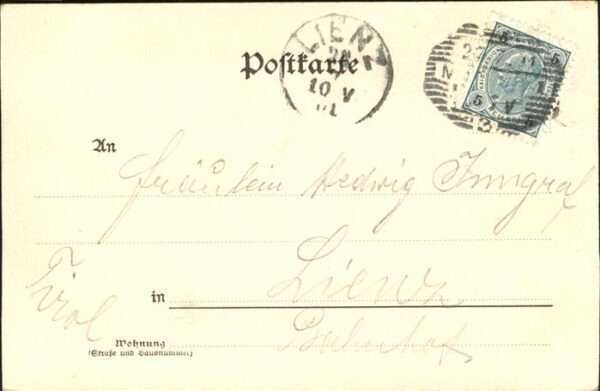 LIENZ
10 V
01
Postkarte
5 5
5 5
An
Fräulein Hedwig Jungraf
Tirol
in Lienz
Bahnhof
Wohnung
(Straße und Hausnummer)